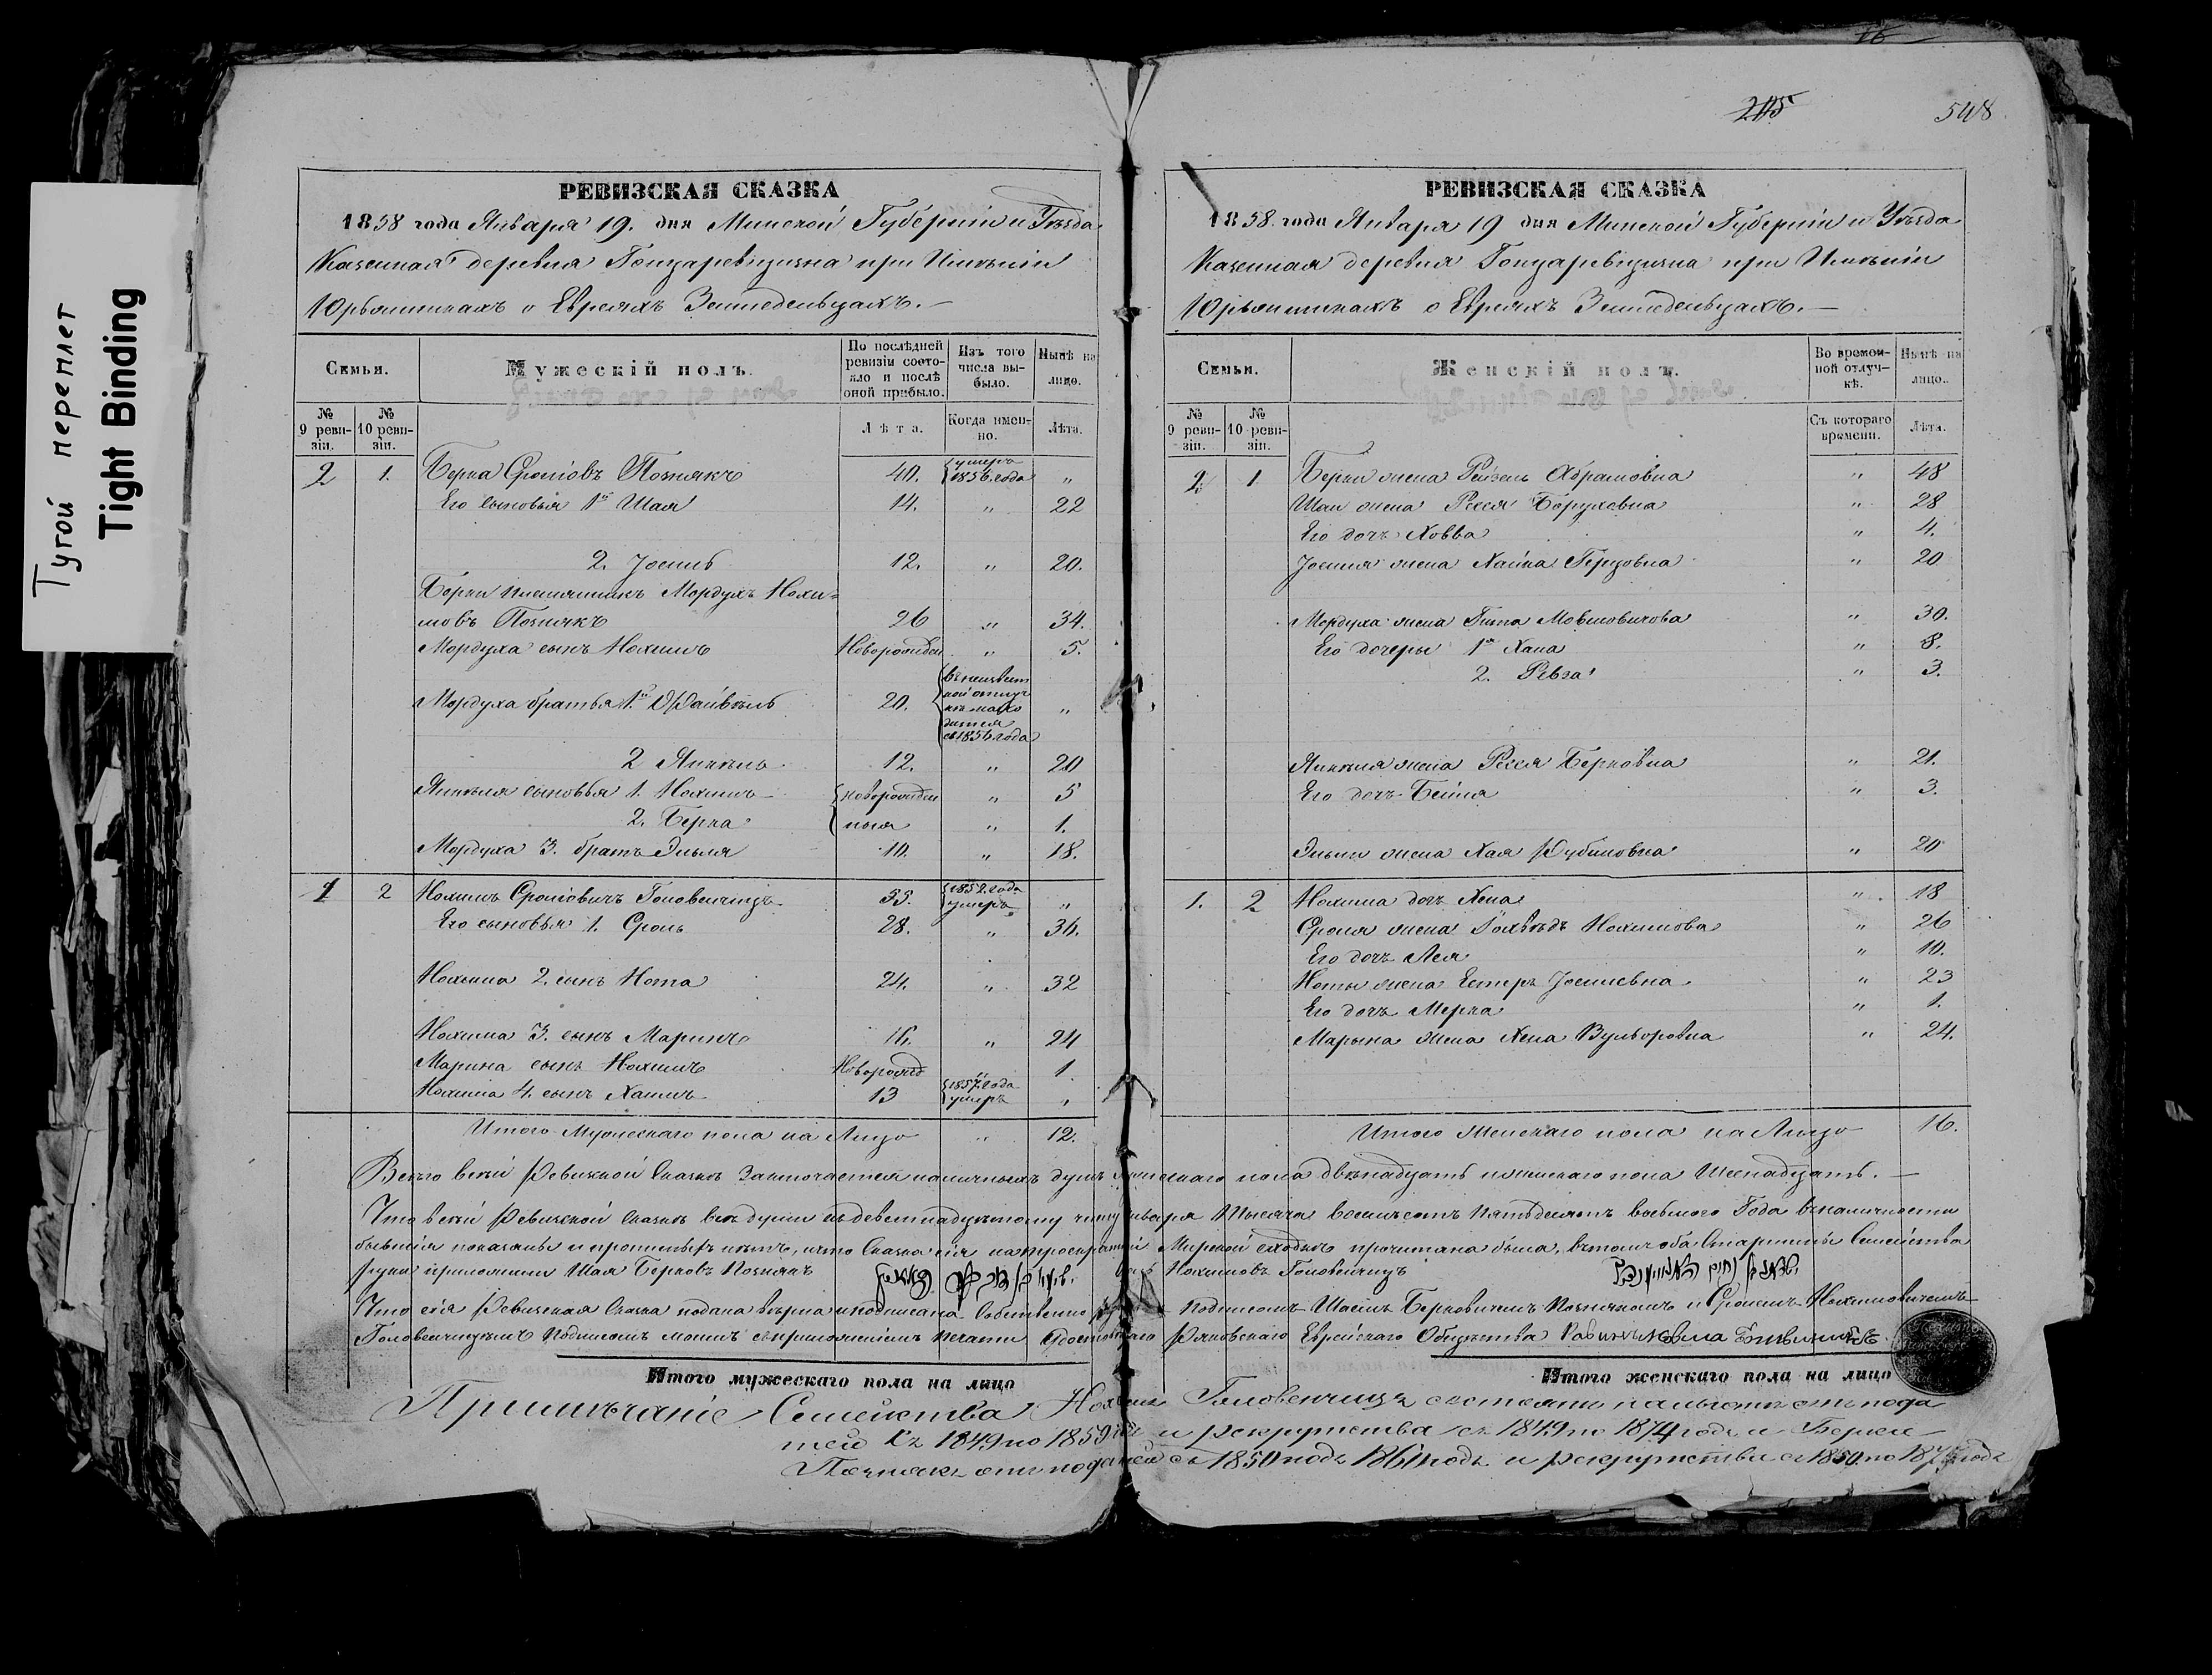 Тугой переплет
Tight Binding
16
205
548
РЕВИЗСКАЯ СКАЗКА
1858 года Января 19. дня Минской Губерніи и Уѣзда
Казенная деревня Гончаревщизна при Имѣніи
о Евреяхъ Земледельцахъ.
Семьи.
Мужескій полъ.
По послѣдней ревизіи состояло и послѣ оной прибыло.
Изъ того числа выбыло.
Нынѣ на лицо.
№ 9 ревизіи.
№ 10 ревизіи.
Лѣта.
Когда именно.
Лѣта.
2 1. Берка Сролiовъ Познякъ 40. умеръ 1856. года "
Его сыновья 1й Шая 14. " 22
2. Іосиль 12. " 20.
Берки племянникъ Мордухъ Нохи=
мовъ Познякъ 26 " 34.
Мордуха сынъ Нохимъ Новорожден " 5.
Мордуха братья 1й 20. "
съ 1856 года
2 Янкель 12. " 20
Янкеля сыновья 1. Нохимъ новорожден " 5
2. Берка ныя " 1.
Мордуха 3. братъ Эльля 10. " 18.
1 2 Нохимъ Сролiовичъ Головенчицъ 55. 1852. года умеръ "
Его сыновья 1. Сроль 28. " 36.
Нохима 2. сынъ Нота 24. " 32
Нохима 3. сынъ Маринъ 16. " 24
Марина сынъ Нохимъ Новорожд " 1.
Нохима 4. сынъ Хаимъ 13 1857. года умеръ "
Итого Мужескаго пола на Лицо " 12.
РЕВИЗСКАЯ СКАЗКА
1858. года Января 19 дня Минской Губерніи и Уѣзда
Казенная деревня Гончаревщизна при Имѣніи
о Евреяхъ Земледельцахъ.
Семьи.
Женскій полъ.
Во временной отлучкѣ.
Нынѣ на лицо.
№ 9 ревизіи.
№ 10 ревизіи.
Съ котораго времени.
Лѣта.
2 1 Берки жена Рейзель Абрамовна " 48
Шаи жена Рехля Боруховна " 28
Его дочь Ховва " 4.
Іосиля жена Хайка Герцовна " 20
Мордуха жена Гита Мовшовичова " 30.
Его дочеры 1я Хана " 8.
2. Ревза " 3.
Янкеля жена Рехля Берковна " 21.
Его дочь Бейля " 3.
Эльли жена Хая Рубиновна " 20
1. 2 Нохима дочь Хена " 18
Сроля жена Іохвѣдъ Нохимова " 26
Его дочь Лея " 10.
Ноты жена Естеръ Іосилевна " 23
Его дочь Мерка " 1.
Марына жена Хена Вульфовна " 24.
Итого Женскаго пола на Лицо 16.
Всего в сей Ревизской Сказкѣ Заключается наличныхъ душъ мужескаго пола двѣнадцать и женскаго пола Шеснадцать.
Что в сей Ревизской Сказкѣ всѣ души къ девятнадцатому числу января Тысяча восемьсотъ Пятьдесятъ восьмого Года въ наличности
бывшія показаны и прописныхъ нѣтъ, и что Сказка сія на Мирской сходкѣ прочитана была, въ томъ оба Старшины Семейства
руки приложили Шая Берковъ Познякъ Нохимовъ Головенчицъ
Что сія Ревизская Сказка подана вѣрна и подписана собственно Подписомъ Шаемъ Берковичемъ Познякомъ и Сролемъ Нохимовичемъ
Головенчицомъ Подписомъ моимъ съ приложеніемъ печати Еврейскаго Общества
Итого мужескаго пола на лицо
Итого женскаго пола на лицо
Примѣчаніе Семейства Нохима Головенчицъ состоятъ на льготѣ отъ пода
тей съ 1849 по 1859 и рекрутства съ 1849 по 1874 годъ и Берки
Познякъ отъ податей съ 1850 подъ 1860 годъ и рекрутства с 1850 по 1875 годъ